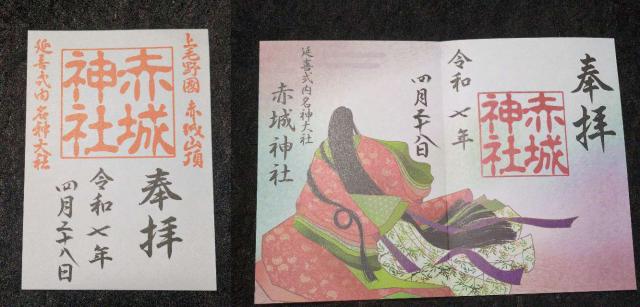 上毛野國 赤城山頂
赤城
神社
延喜式内名神大社
奉拝
令和七年
四月二十八日
奉拝
赤城
神社
令和七年
四月二十八日
延喜式内名神大社
赤城神社